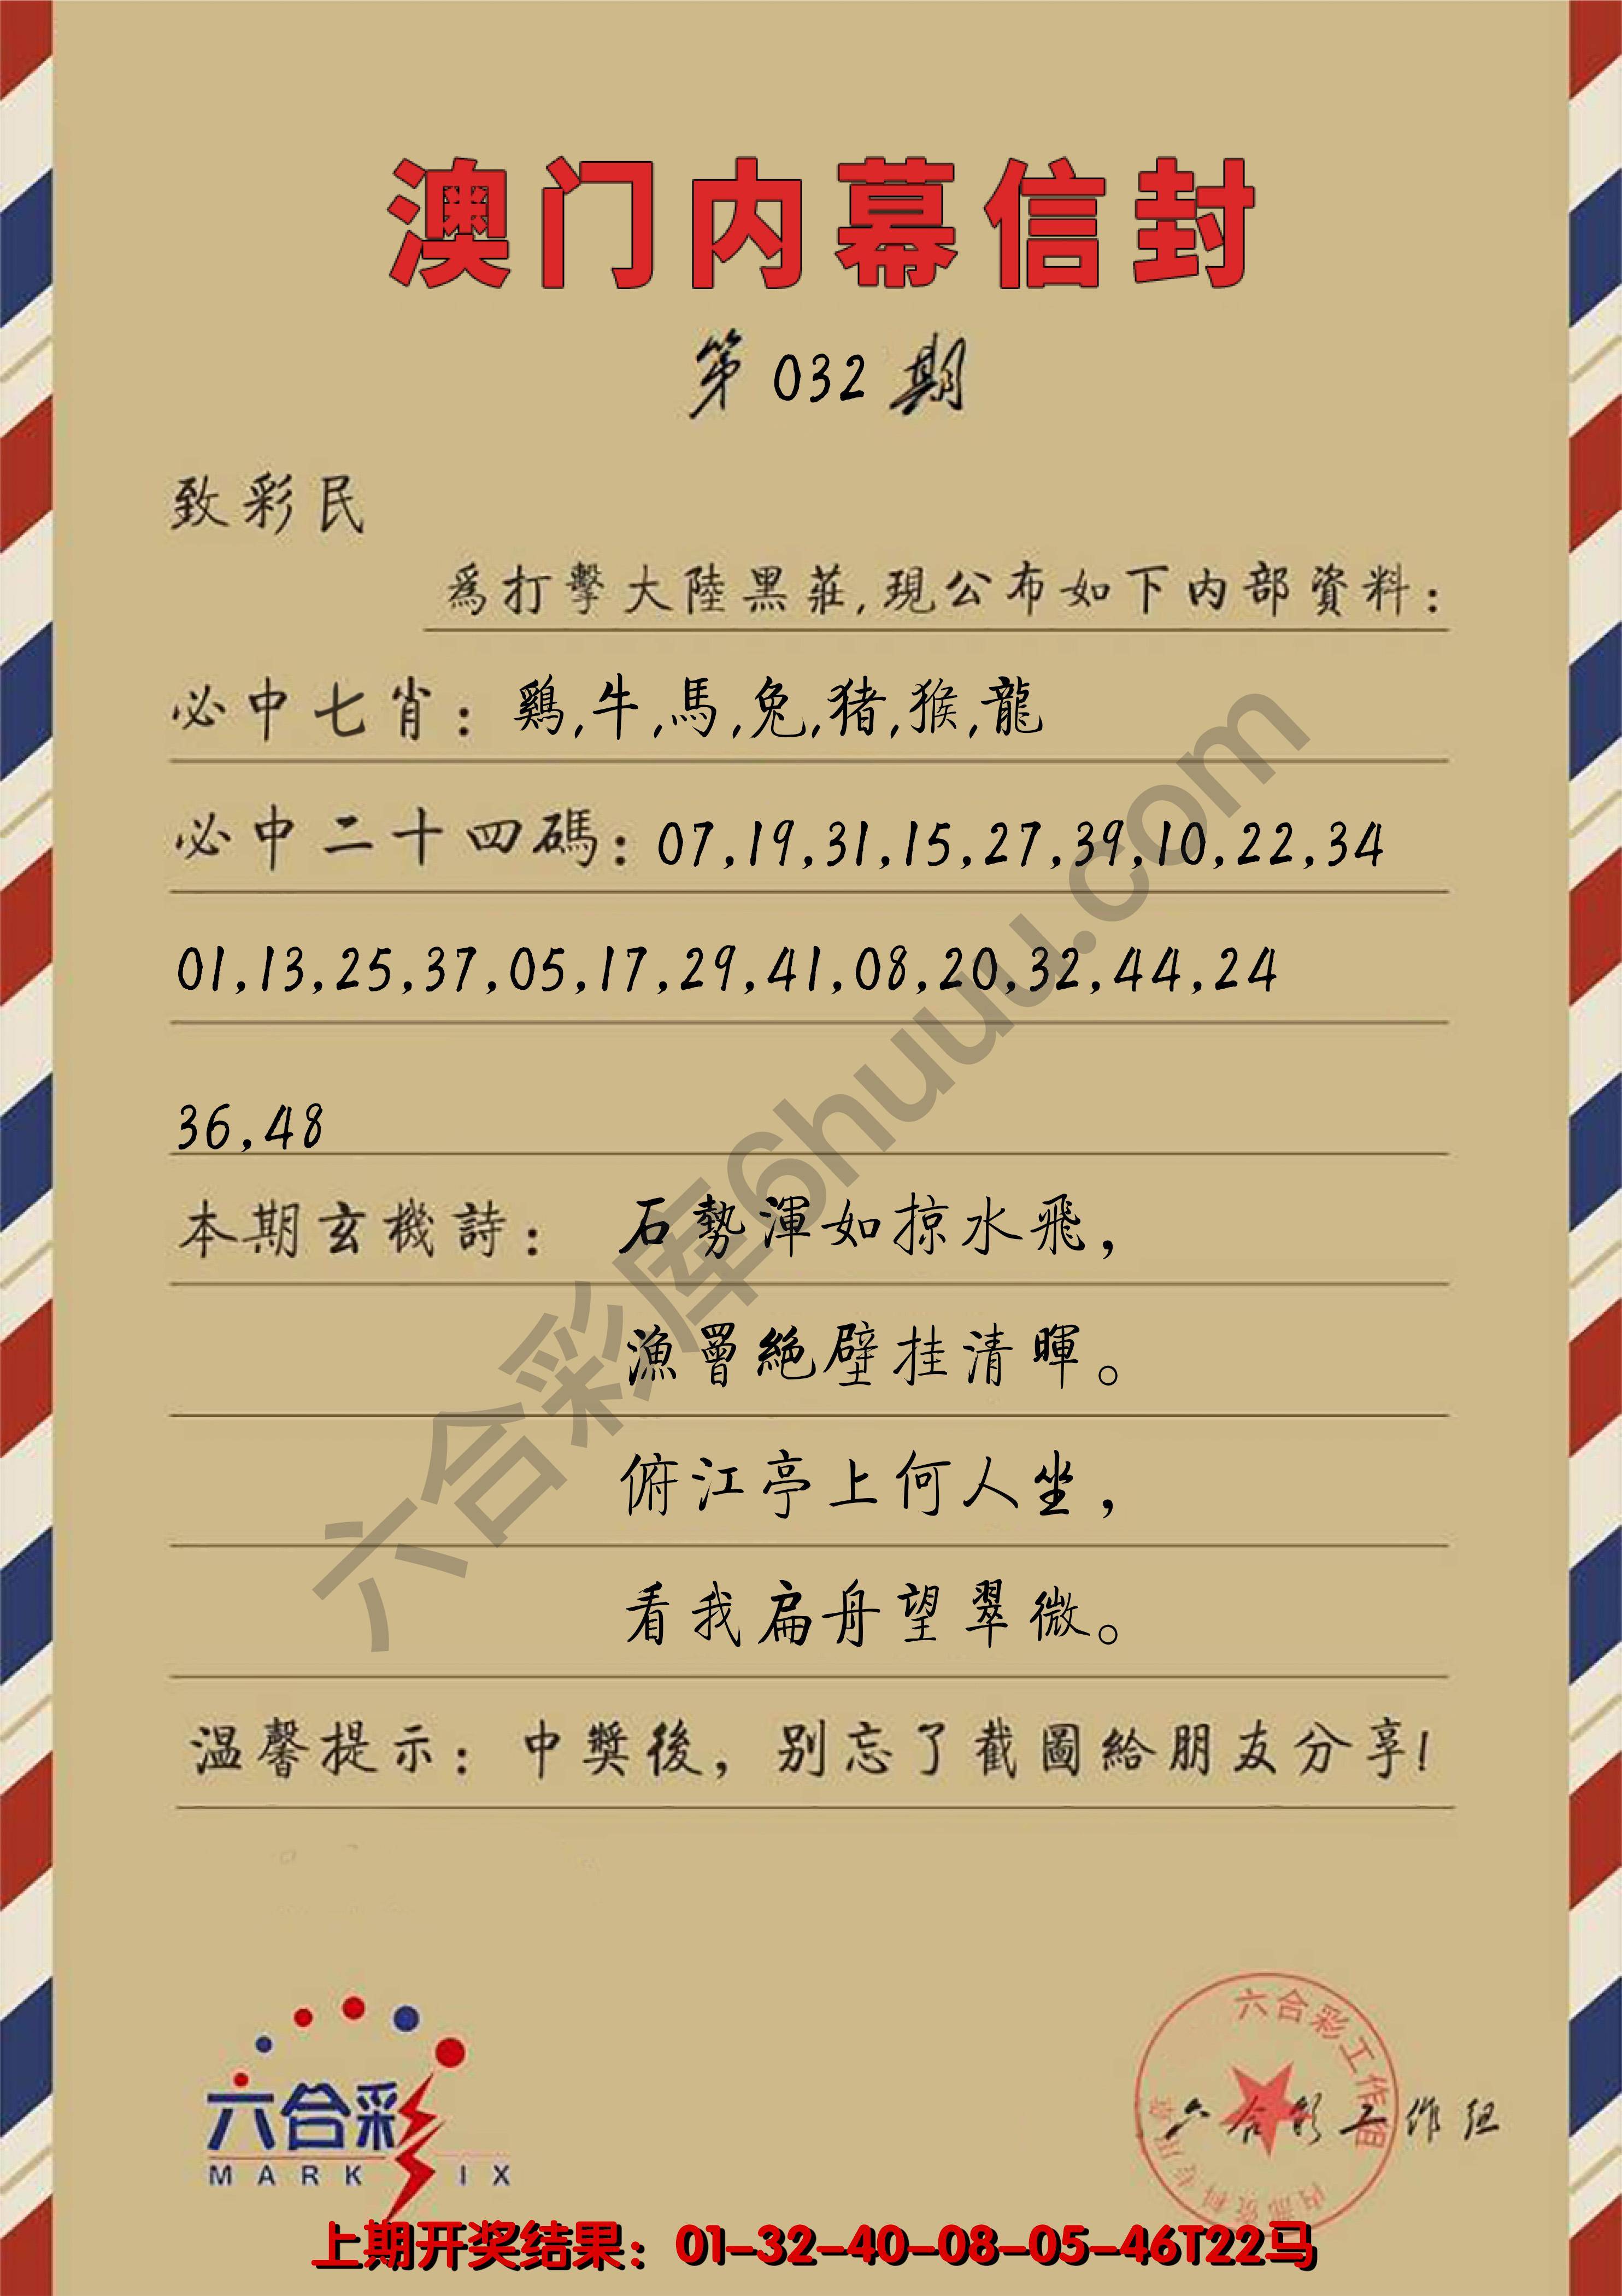 澳门内幕信封
第032期
致彩民
爲打擊大陸黑莊,現公布如下内部資料:
必中七肖:鷄,牛,馬,兔,猪,猴,龍
必中二十四碼:07,19,31,15,27,39,10,22,34
01,13,25,37,05,17,29,41,08,20,32,44,24
36,48
本期玄機詩: 石勢渾如掠水飛,
漁罾絶壁挂清暉。
俯江亭上何人坐,
看我扁舟望翠微。
温馨提示:中獎後,别忘了截圖給朋友分享!
六合彩库6huuu.com
六合彩
MARK IX
六合彩工作组
内部资料专用章
六合彩工作组
上期开奖结果:01-32-40-08-05-46T22马